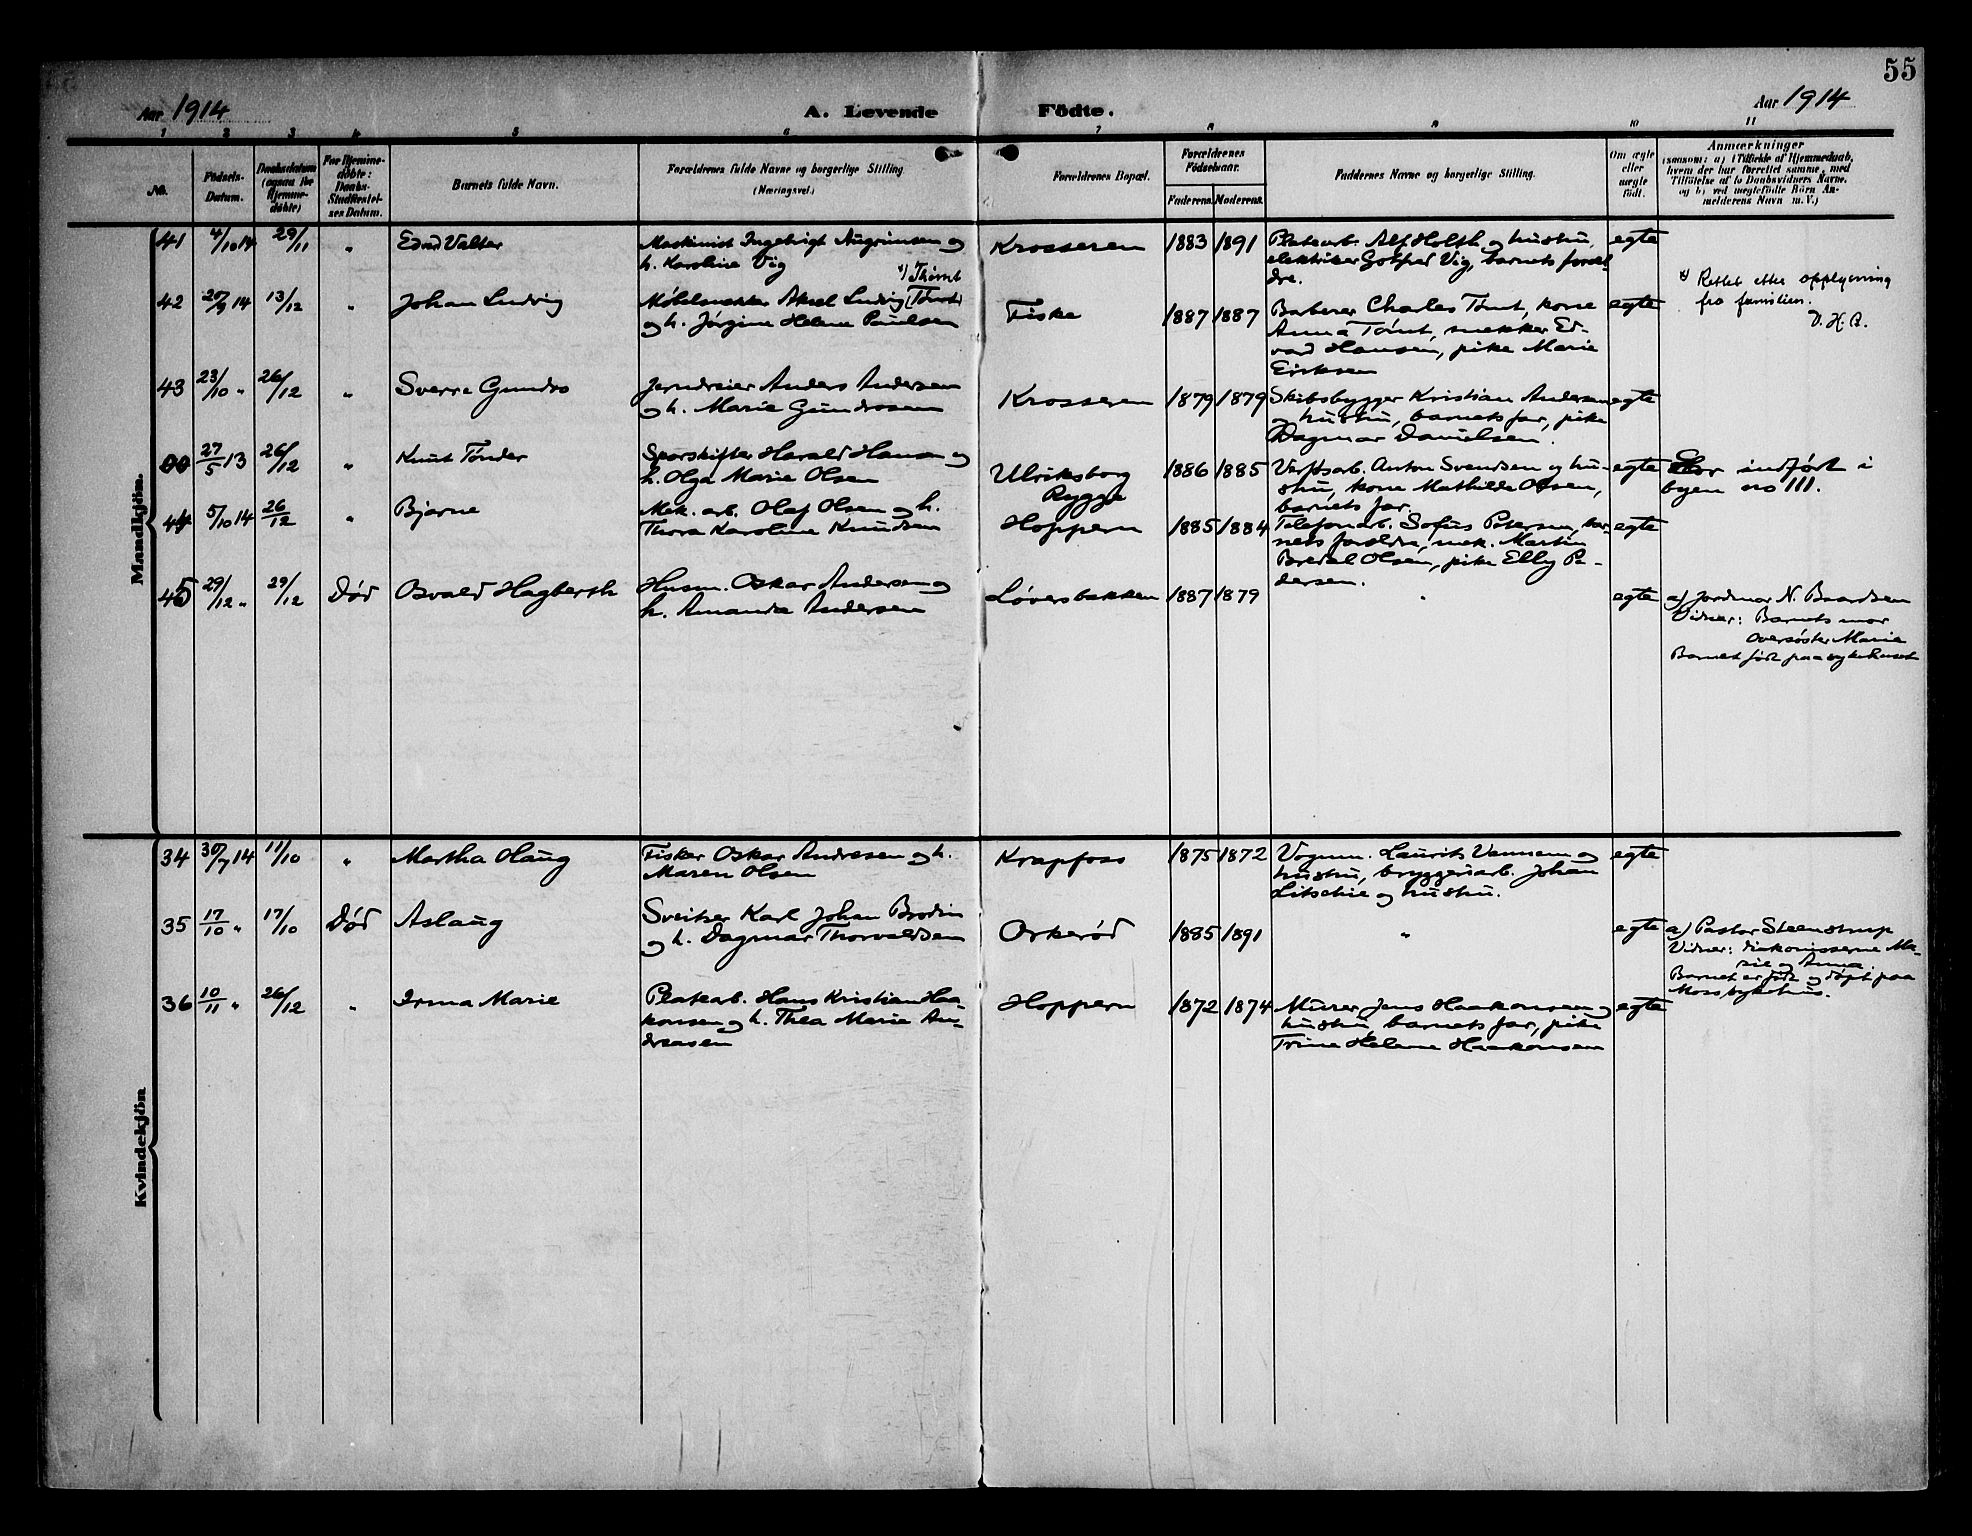 55
Aar 1914
A. Levende Födte.
Aar 1914
1 2 3 4 5 6 7 8 9 10 11
No.
Födsels-
Datum.
Daabsdatum
(ogsaa for
Hjemme-
döbte)
For Hjemme-
döbte:
Daabs-
Stadfæstel-
ses Datum.
Barnets fulde Navn.
Forældrenes fulde Navne og borgerlige Stilling
(Næringsvei.)
Forældrenes Bopæl.
Forældrenes
Födselsaar.
Faderens. Moderens.
Faddernes Navne og borgerlige Stilling.
Om ægte
eller
uægte
födt.
Anmærkninger
(saasom: a) i Tilfælde af Hjemmedaab,
hvem der har forrettet samme, med
Tilföielse af to Daabsvidners Navne,
og b) ved uægtefödte Börn An-
melderens Navn m. V.)
Mandkjön.
41 4/10 14 29/11 "
Maskinist Ingebrigt Angrimsen og
h. Karoline Vig
Krosseren 1883 1891
Platearb. Alf Holth og hustru,
elektriker Gotfred Vig, barnets foræl-
dre.
egte
42 20/9 14 13/12 " Johan Ludvig
x) Thømt
Møbelsnekker Aksel Ludvig (Tømt)
og h. Jørgine Helene Paulsen
Fiske 1887 1887
Barberer Charles Tømt, kone
Anna Tømt, snekker Ed-
vard Hansen, pike Marie
Eriksen
egte
x) Rettet efter opplysning
fra familien.
43 23/10 " 26/12 " Sverre Gundro
Jerndreier Anders Andersen
og h. Marie Gundrosen
Krosseren 1879 1879
Skibsbygger Kristian Andersen
og hustru, barnets far, pike
Dagmar Danielsen.
egte
00 27/5 13 26/12 " Knut Tønder
Sporskifter Harald Hansen og
h. Olga Marie Olsen
Ulriksborg
Rygge
1886 1885
Verftsarb. Anton Svendsen og hu-
stru, kone Mathilde Olsen,
barnets far.
egte
indført i
byen no 111.
44 5/10 14 26/12 " Bjarne
Mek. arb. Olaf Olsen og h.
Thora Karoline Knudsen
Hoppern 1885 1884
Telefonarb. Sofus Petersen, bar-
nets foreldre, mek. Martin
Bredal Olsen, pike Elly Pe-
dersen.
egte
45 29/12 " 29/12 Død Osvald Hagberth
Husm. Oskar Andersen og
h. Amanda Andersen
Løversbakken 1887 1879 "
egte
a) Jordmor N. Baardsen
Vidner: Barnets mor
Oversøster Marie
Barnet født paa sykehuset
Kvindekjön
34 30/7 14 11/10 " Martha Haug
Fisker Oskar Andresen og h.
Maren Olsen
Krapfoss 1875 1872
Vognm. Laurits Vannem og
hustru, bryggeriarb. Johan
Litschie og hustru.
egte
35 17/10 " 17/10 Død Aslaug
Sveitser Karl Johan Brodin
og h. Dagmar Thorvaldsen
Orkerød 1885 1891 "
egte
a) Pastor Steenstrup
Vidner: diakonisserne Ma-
rie og Anna.
Barnet er født og døpt paa
Moss sykehus.
36 10/11 " 26/12 " Irma Marie
Platearb. Hans Kristian Haa-
konsen og h. Thea Marie An-
dreasen
Hoppern 1872 1874
Murer Jens Haakonsen og
hustru, barnets far, pike
Trine Helene Haakonsen
egte